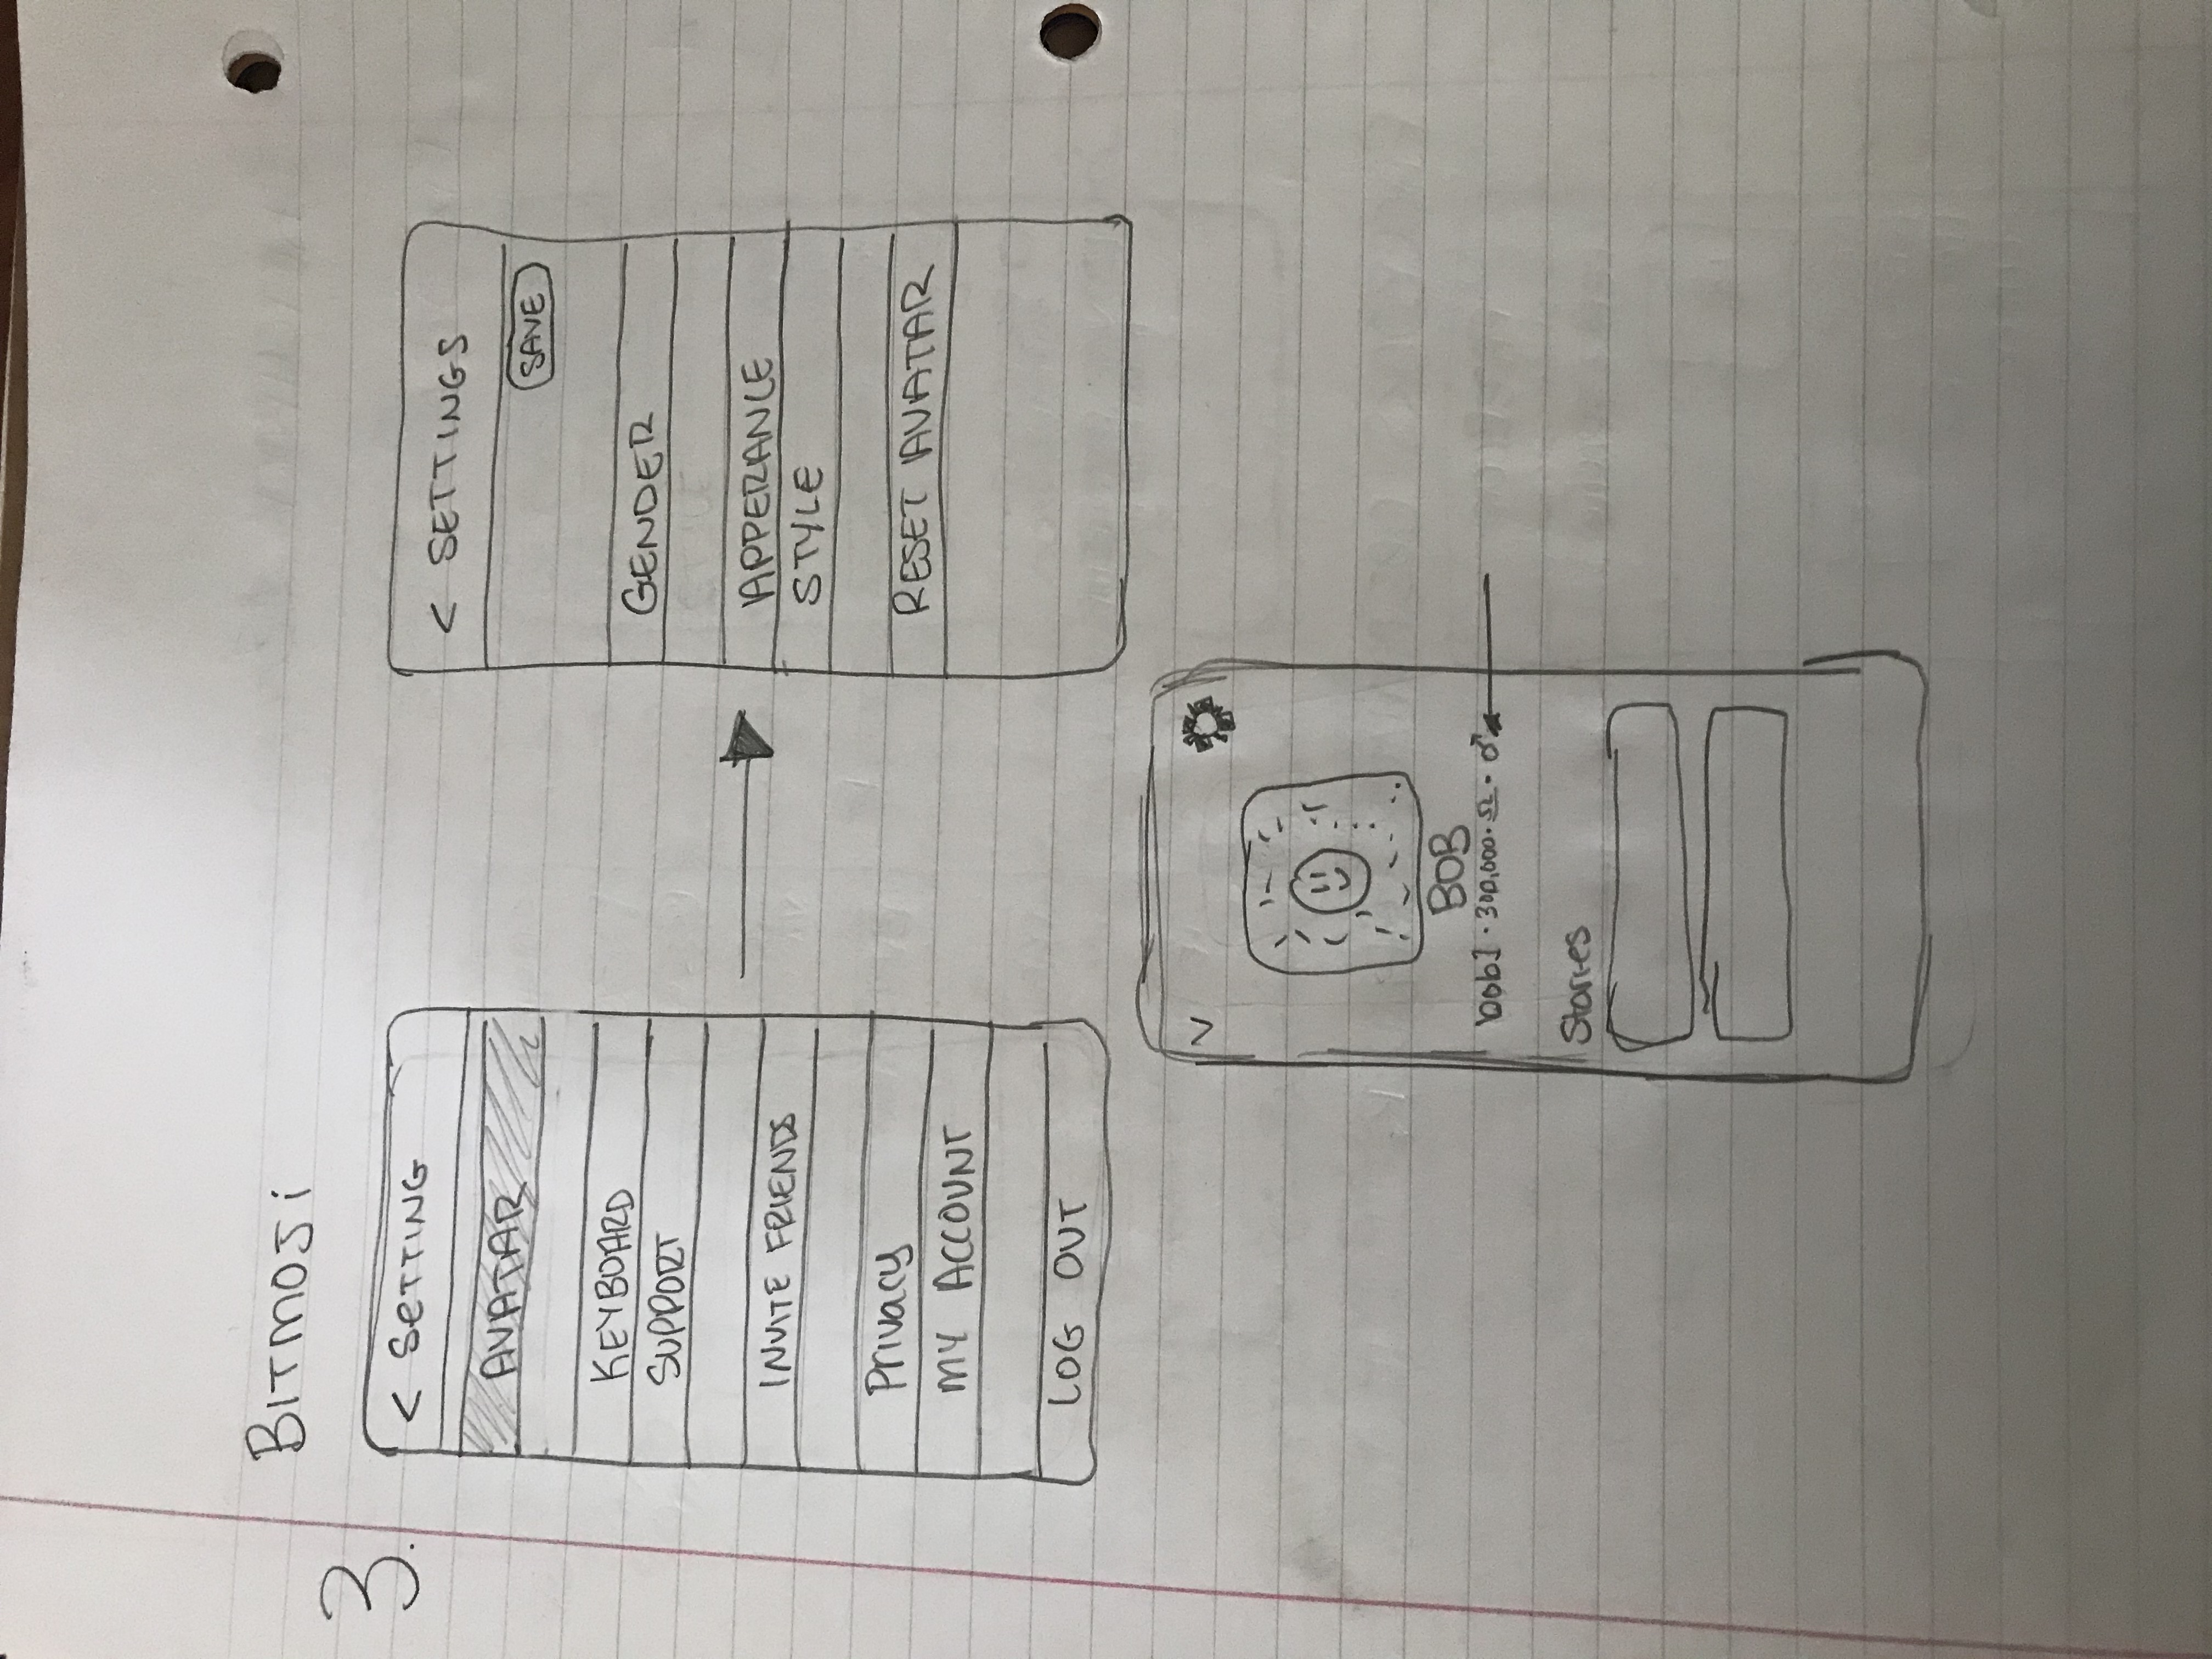 BITMOJi
3.
< SeTTING
AVATAR
KEYBOARD
SUPPORT
INVITE FRIENDS
Privacy
MY ACCOUNT
LOG OUT
< SETTINGS
SAVE
GENDER
APPERANCE
STYLE
RESET AVATAR
BOB
bob1 · 300,000 · ♎ · ♂
Stories